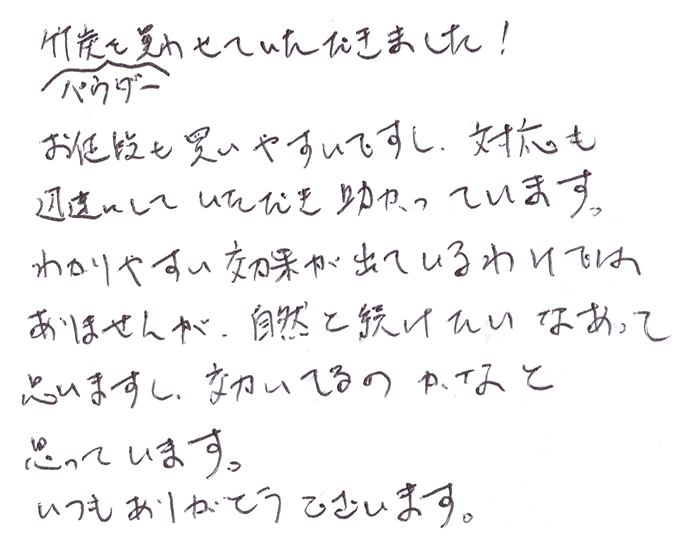 竹炭を買わせていただきました！
パウダー
お値段も買いやすいですし、対応も
迅速にしていただき助かっています。
わかりやすい効果が出ているわけでは
ありませんが、自然と続けたいなあって
思いますし、効いてるのかなと
思っています。
いつもありがとうございます。